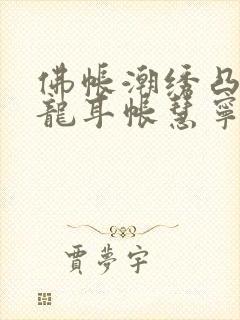 佛帳潮绣凸
龍耳帳慧寧
賈夢宇